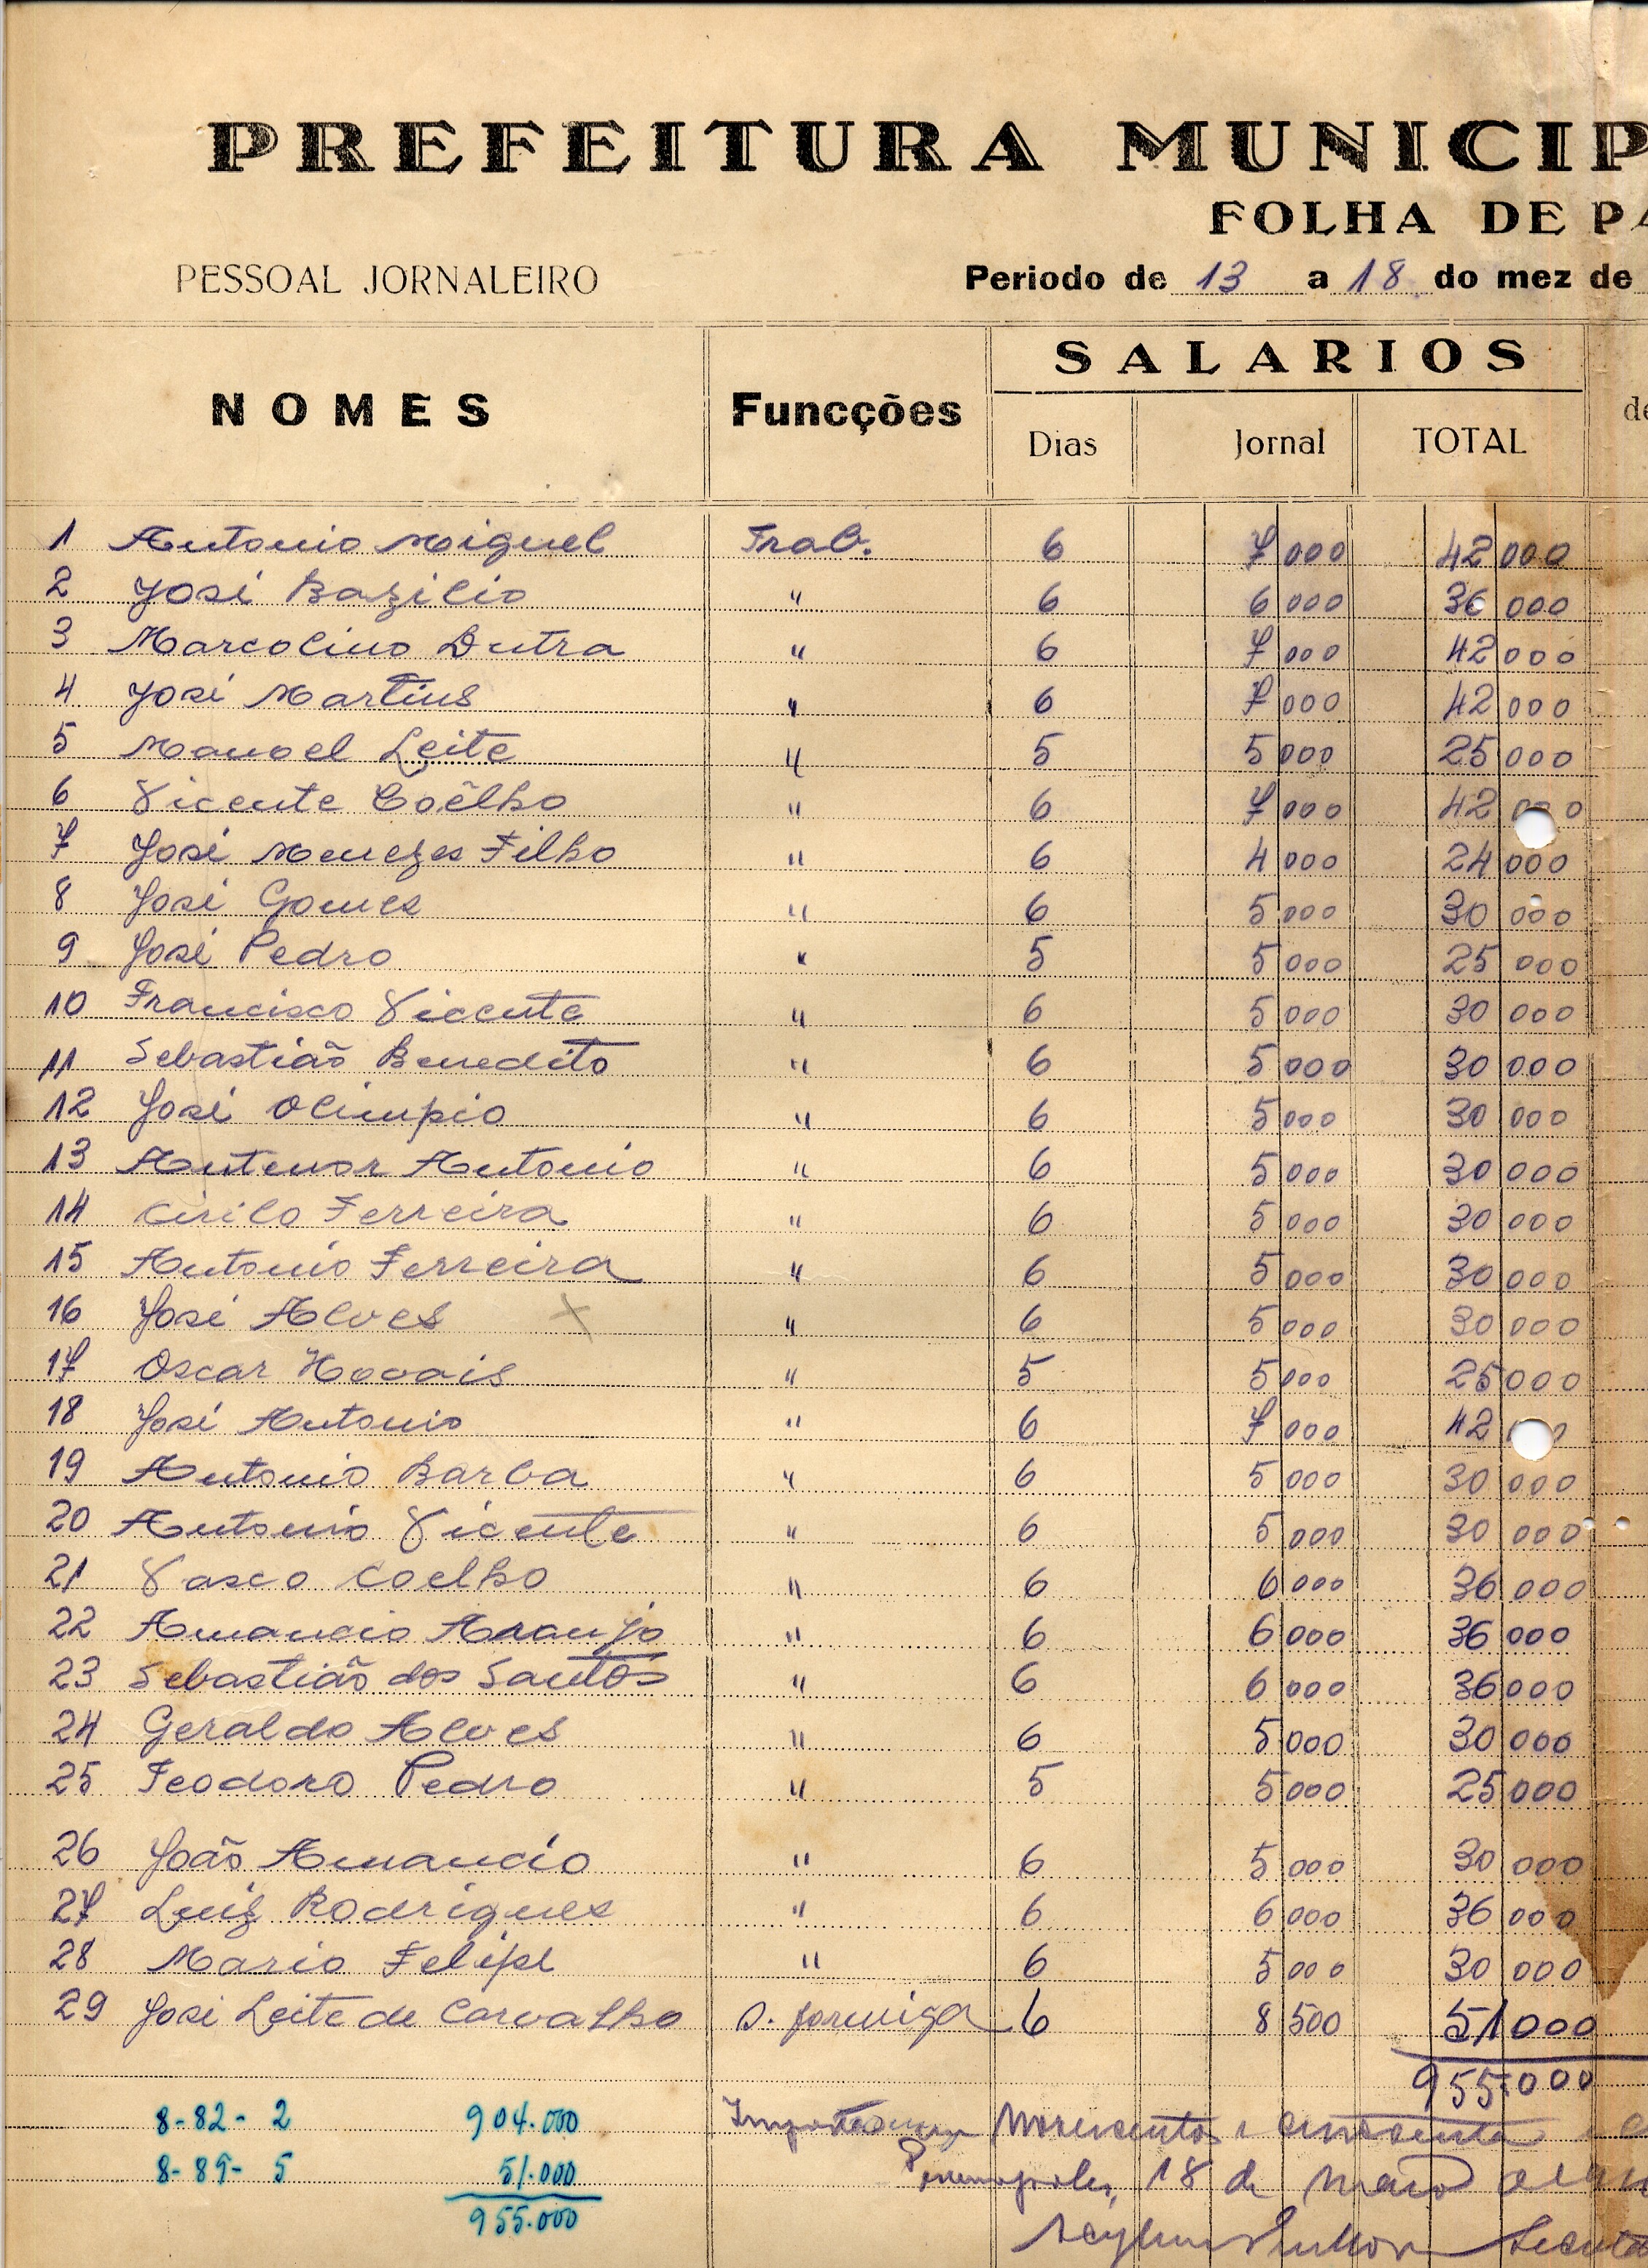 PREFEITURA MUNICIP
FOLHA DE PA
PESSOAL JORNALEIRO Periodo de 13 a 18 do mez de
NOMES Funcções SALARIOS de
Dias Jornal TOTAL
1 Antonio Miguel Trab. 6 7 000 42 000
2 José Bazilio " 6 6 000 36 000
3 Marcolino Dutra " 6 7 000 42 000
4 José Martins " 6 7 000 42 000
5 Manoel Leite " 5 5 000 25 000
6 Vicente Coêlho " 6 7 000 42 000
7 José Menezes Filho " 6 4 000 24 000
8 José Gomes " 6 5 000 30 000
9 José Pedro " 5 5 000 25 000
10 Francisco Vicente " 6 5 000 30 000
11 Sebastião Benedito " 6 5 000 30 000
12 José Olimpio " 6 5 000 30 000
13 Antenor Antonio " 6 5 000 30 000
14 Cirilo Ferreira " 6 5 000 30 000
15 Antonio Ferreira " 6 5 000 30 000
16 José Alves X " 6 5 000 30 000
17 Oscar Novais " 5 5 000 25 000
18 José Antonio " 6 7 000 42
19 Antonio Barba " 6 5 000 30 000
20 Antonio Vicente " 6 5 000 30 000
21 Vasco Coelho " 6 6 000 36 000
22 Amancio Araujo " 6 6 000 36 000
23 Sebastião dos Santos " 6 6 000 36 000
24 Geraldo Alves " 6 5 000 30 000
25 Teodoro Pedro " 5 5 000 25 000
26 João Amancio " 6 5 000 30 000
27 Luiz Rodrigues " 6 6 000 36 000
28 Mario Felipe " 6 5 000 30 000
29 José Leite de Carvalho s. formiga 6 8 500 51 000
955.000
8-82-2 904.000 novecentos e cincoenta e
8-89-5 51.000 Pennapolis, 18 de Maio de
955.000